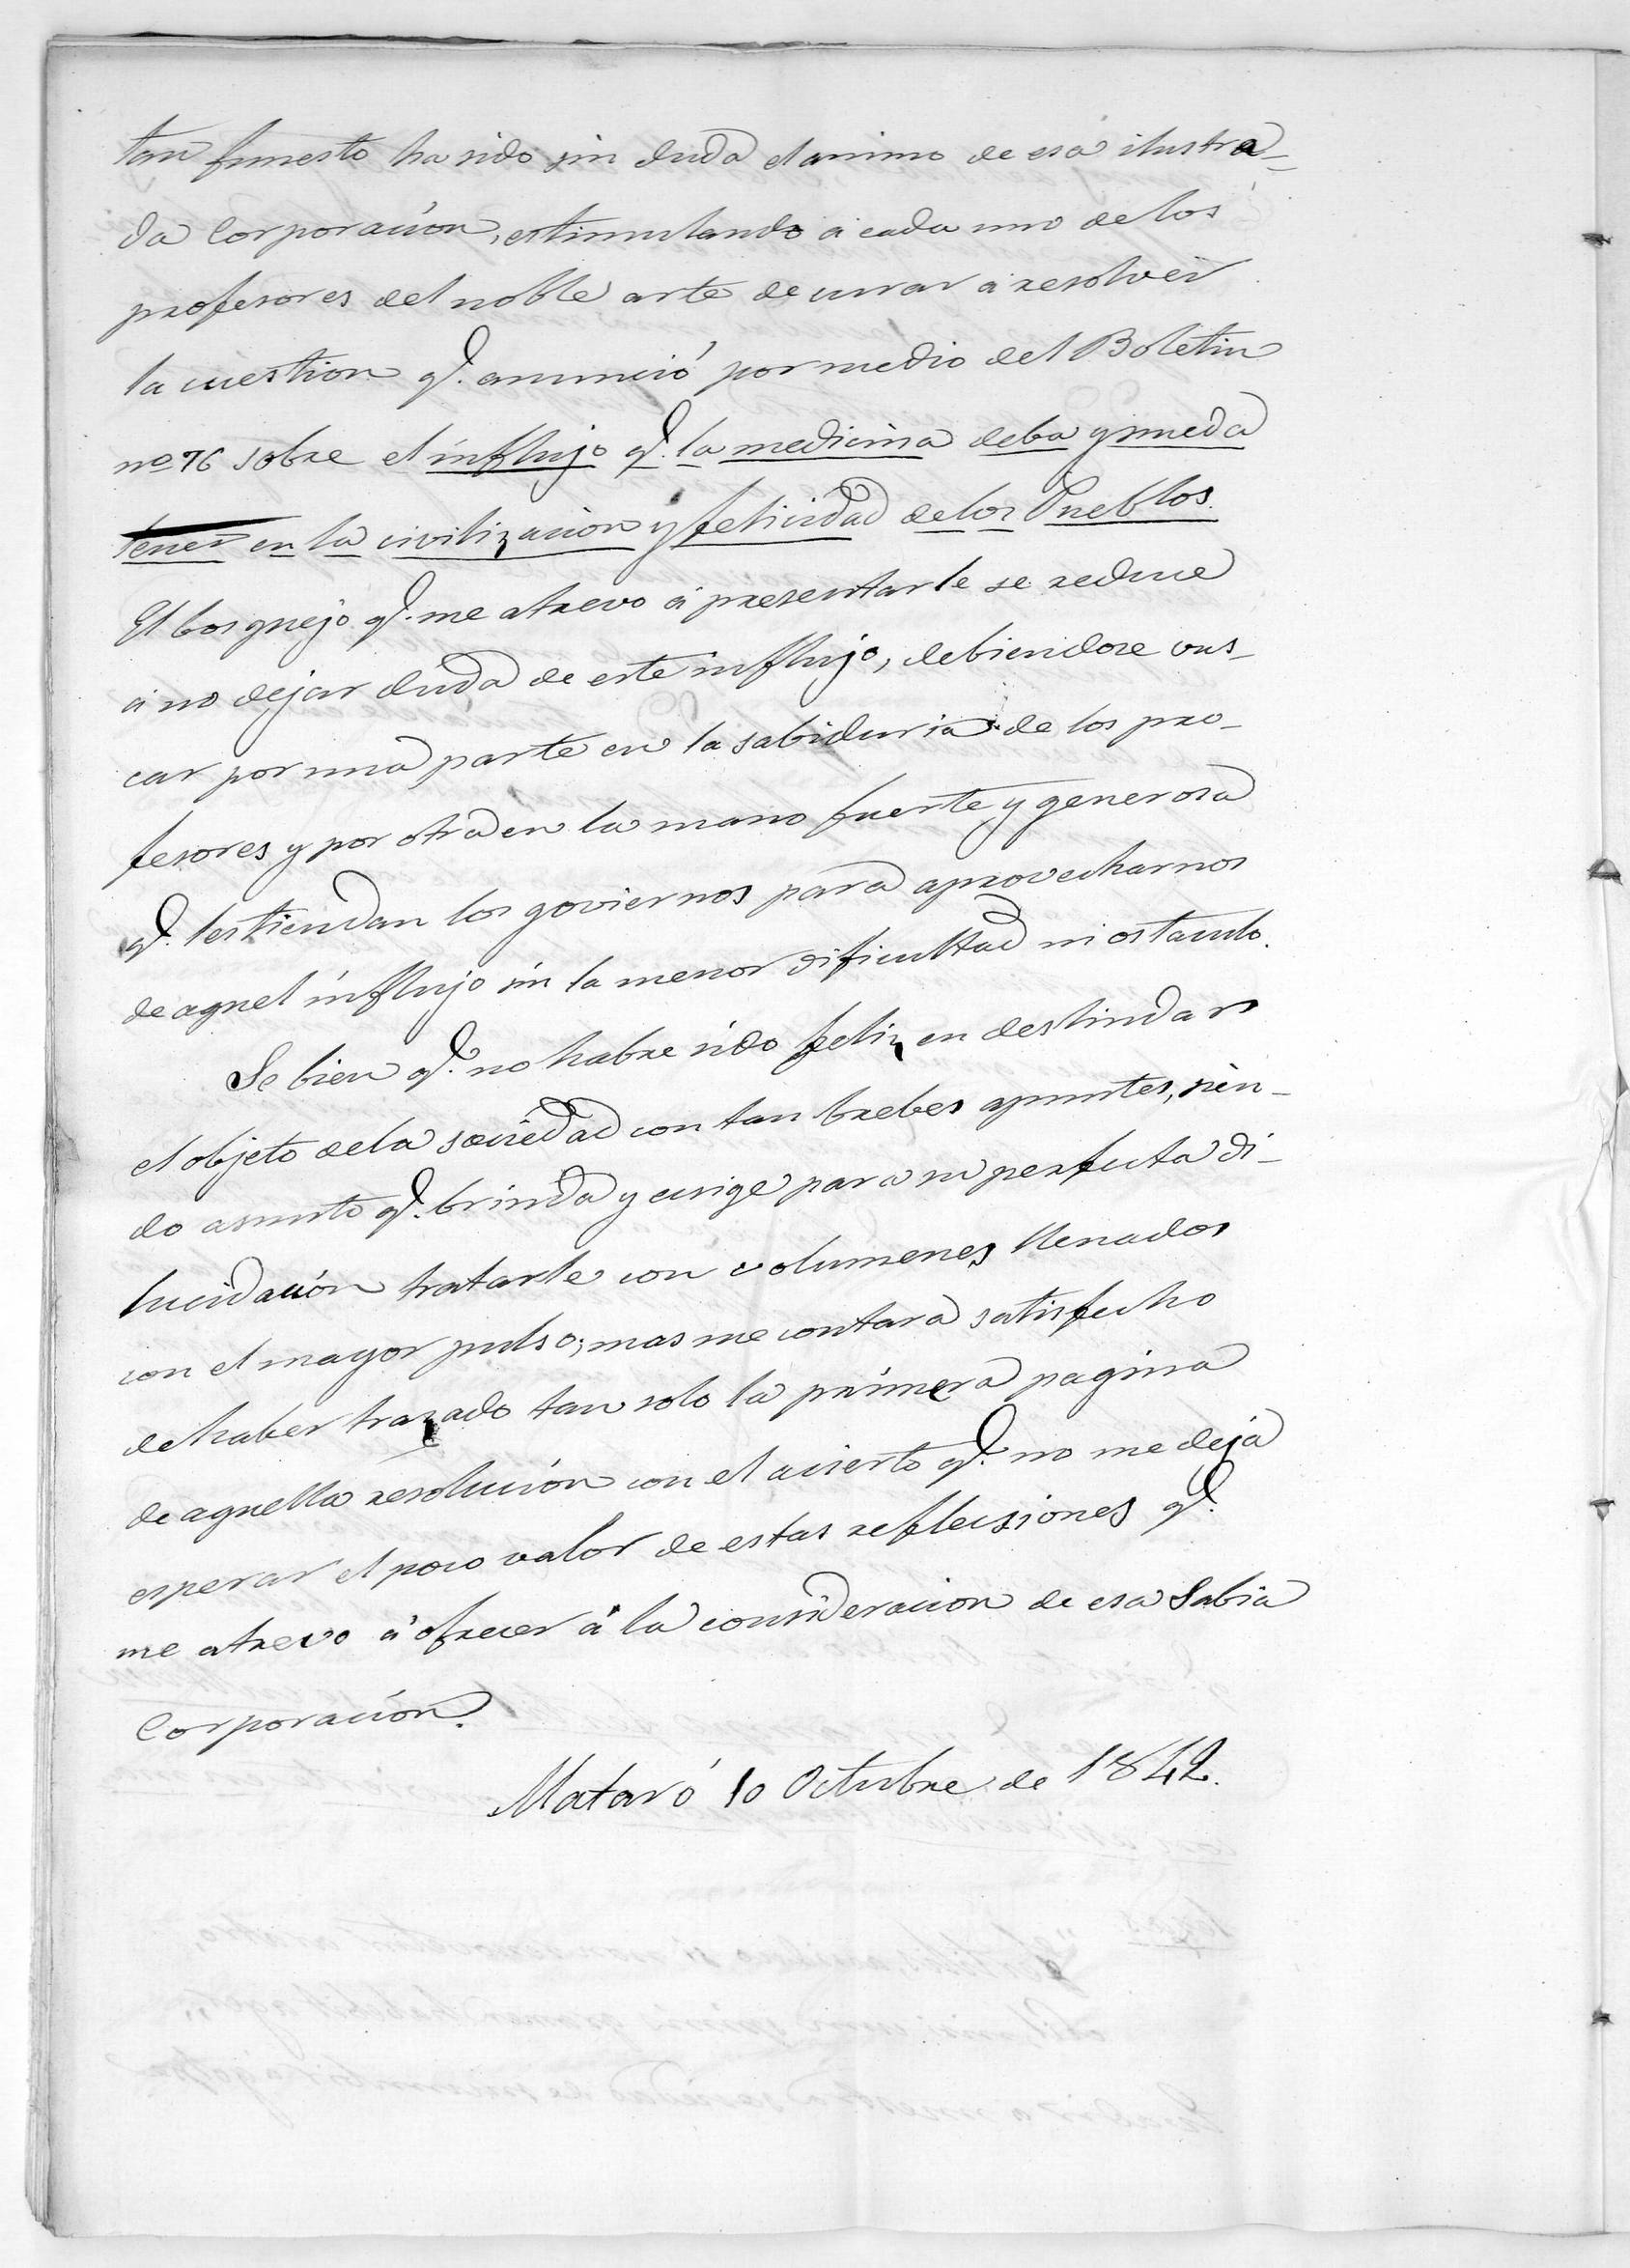 tan funesto ha sido sin duda el animo de esa ilustra-
da Corporación, estimulando á cada uno de los
profesores del noble arte de curar á resolver
la cuestion q.e anunció por medio del Boletin
no 76 sobre el influjo q.e la medicina deba y pueda
tener en la civilizacion y felicidad de los Pueblos.
El bosquejo q.e me atrevo á presentarle se reduce
á no dejar duda de este influjo, debiendose vus-
car por una parte en la sabiduria de los pro-
fesores y por otra en la mano fuerte y generosa
q.e les tiendan los goviernos para aprovecharnos
de aquel influjo sin la menor dificultad ni ostaculo.
Se bien q.e no habre sido feliz en deslindar
el objeto de la sociedad con tan brebes apuntes, sien-
do asunto q.e brinda y ecsige para su perfecta di-
lucidación tratarle con volumenes llenados
con el mayor pulso; mas me contara satisfecho
de haber trazado tan solo la primera pagina
de aquella resolución con el acierto q.e no me deja
esperar el poco valor de estas reflecsiones q.e
me atrevo á ofrecer á la consideracion de esa Sabia
Corporación.
Mataró 10 Octubre de 1842.